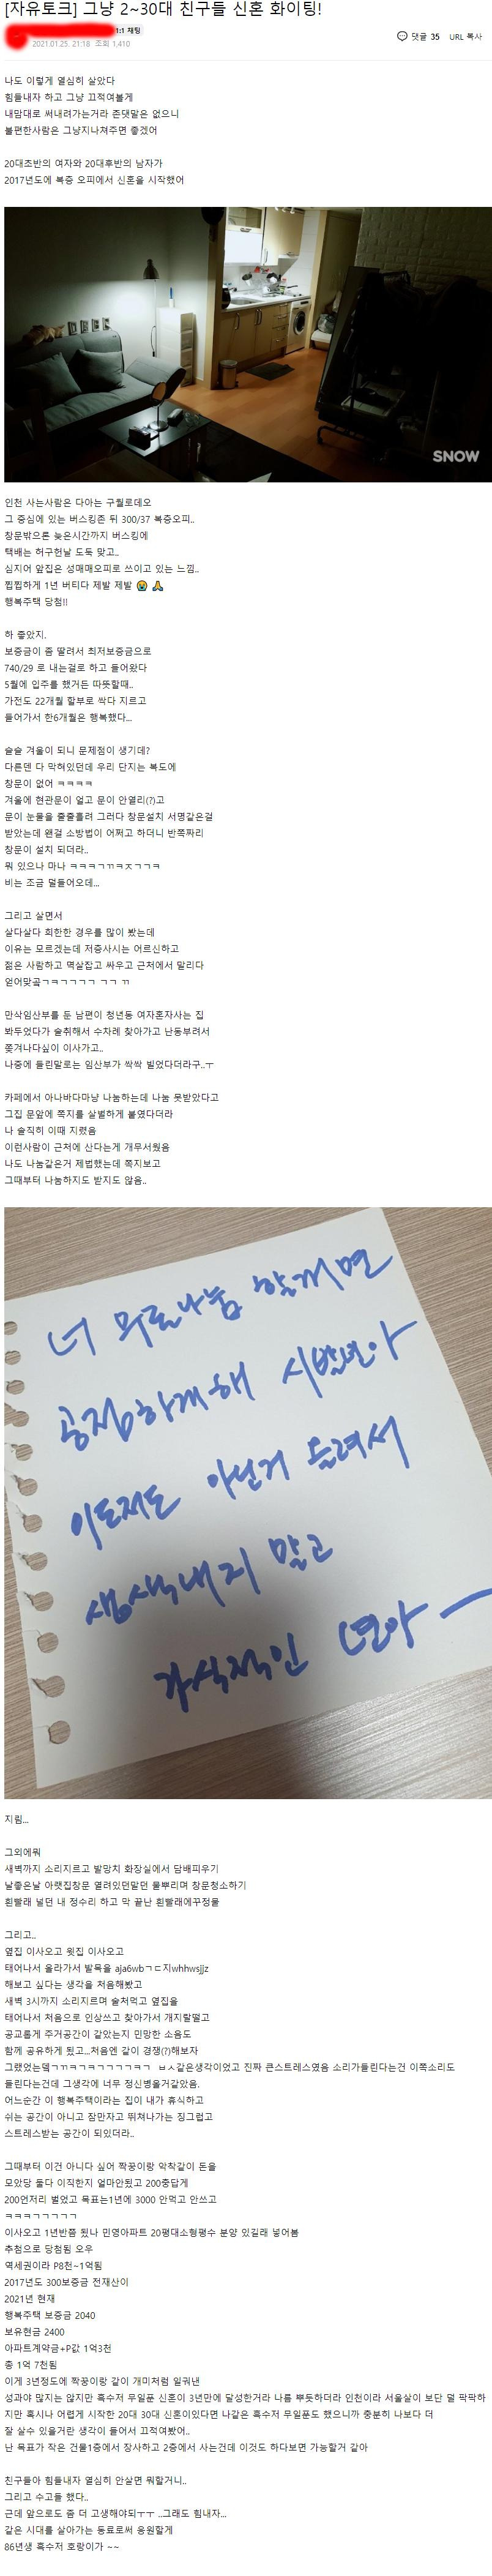 [자유토크] 그냥 2~30대 친구들 신혼 화이팅!
1:1 채팅
2021.01.25. 21:18 조회 1,410
댓글 35 URL 복사
나도 이렇게 열심히 살았다
힘들내자 하고 그냥 끄적여볼게
내맘대로 써내려가는거라 존댓말은 없으니
불편한사람은 그냥지나쳐주면 좋겠어
20대초반의 여자와 20대후반의 남자가
2017년도에 복층 오피에서 신혼을 시작했어
SNOW
인천 사는사람은 다아는 구월로데오
그 중심에 있는 버스킹존 뒤 300/37 복층오피..
창문밖으론 늦은시간까지 버스킹에
택배는 허구헌날 도둑 맞고..
심지어 앞집은 성매매오피로 쓰이고 있는 느낌..
찝찝하게 1년 버티다 제발 제발 😭 🙏
행복주택 당첨!!
하 좋았지.
보증금이 좀 딸려서 최저보증금으로
740/29 로 내는걸로 하고 들어왔다
5월에 입주를 했거든 따뜻할때..
가전도 22개월 할부로 싹다 지르고
들어가서 한6개월은 행복했다...
슬슬 겨울이 되니 문제점이 생기데?
다른덴 다 막혀있던데 우리 단지는 복도에
창문이 없어 ㅋㅋㅋㅋ
겨울에 현관문이 얼고 문이 안열리(?)고
문이 눈물을 줄줄흘려 그러다 창문설치 서명같은걸
받았는데 왠걸 소방법이 어쩌고 하더니 반쪽짜리
창문이 설치 되더라..
뭐 있으나 마나 ㅋㅋㅋㄱㄲㅋㅈㄱㄱㅋ
비는 조금 덜들어오데...
그리고 살면서
살다살다 희한한 경우를 많이 봤는데
이유는 모르겠는데 저층사시는 어르신하고
젊은 사람하고 멱살잡고 싸우고 근처에서 말리다
얻어맞곸ㄱㅋㄱㄱㄱㄱ ㄱㄱ ㄲ
만삭임산부를 둔 남편이 청년동 여자혼자사는 집
봐두었다가 술취해서 수차례 찾아가고 난동부려서
쫒겨나다싶이 이사가고..
나중에 들린말로는 임산부가 싹싹 빌었다더라구..ㅜ
카페에서 아나바다마냥 나눔하는데 나눔 못받았다고
그집 문앞에 쪽지를 살벌하게 붙였다더라
나 솔직히 이때 지렸음
이런사람이 근처에 산다는게 개무서웠음
나도 나눔같은거 제법했는데 쪽지보고
그때부터 나눔하지도 받지도 않음..
너 무료나눔 할꺼면
공정하게해 시발년아
이도저도 아닌거 들려서
생색내지 말고
가식적인 년아ㅡ
지림...
그외에뭐
새벽까지 소리지르고 발망치 화장실에서 담배피우기
날좋은날 아랫집창문 열려있던말던 물뿌리며 창문청소하기
흰빨래 널던 내 정수리 하고 막 끝난 흰빨래에꾸정물
그리고..
옆집 이사오고 윗집 이사오고
태어나서 올라가서 발목을 aja6wbㄱㄷ지whhwsjjz
해보고 싶다는 생각을 처음해봤고
새벽 3시까지 소리지르며 술처먹고 옆집을
태어나서 처음으로 인상쓰고 찾아가서 개지랄떨고
공교롭게 주거공간이 같았는지 민망한 소음도
함께 공유하게 됬고...처음엔 같이 경쟁(?)해보자
들린다는건데 그생각에 너무 정신병올거같았음.
어느순간 이 행복주택이라는 집이 내가 휴식하고
쉬는 공간이 아니고 잠만자고 뛰쳐나가는 징그럽고
스트레스받는 공간이 되있더라..
그때부터 이건 아니다 싶어 짝꿍이랑 악착같이 돈을
모았당 둘다 이직한지 얼마안됬고 200충답게
200언저리 벌었고 목표는1년에 3000 안먹고 안쓰고
ㅋㅋㅋㄱㄱㄱㄱㄱ
이사오고 1년반쯤 됬나 민영아파트 20평대소형평수 분양 있길래 넣어봄
추첨으로 당첨됨 오우
역세권이라 P8천~1억됨
2017년도 300보증금 전재산이
2021년 현재
행복주택 보증금 2040
보유현금 2400
아파트계약금+P값 1억3천
총 1억 7천됨
이게 3년정도에 짝꿍이랑 같이 개미처럼 일궈낸
성과야 많지는 않지만 흑수저 무일푼 신혼이 3년만에 달성한거라 나름 뿌듯하더라 인천이라 서울살이 보단 덜 팍팍하
지만 혹시나 어렵게 시작한 20대 30대 신혼이있다면 나같은 흑수저 무일푼도 했으니까 충분히 나보다 더
잘 살수 있을거란 생각이 들어서 끄적여봤어..
난 목표가 작은 건물1층에서 장사하고 2층에서 사는건데 이것도 하다보면 가능할거 같아
친구들아 힘들내자 열심히 안살면 뭐할거니..
그리고 수고들 했다..
근데 앞으로도 좀 더 고생해야되ㅜㅜ ..그래도 힘내자...
같은 시대를 살아가는 동료로써 응원할게
86년생 흑수저 호랑이가 ~~